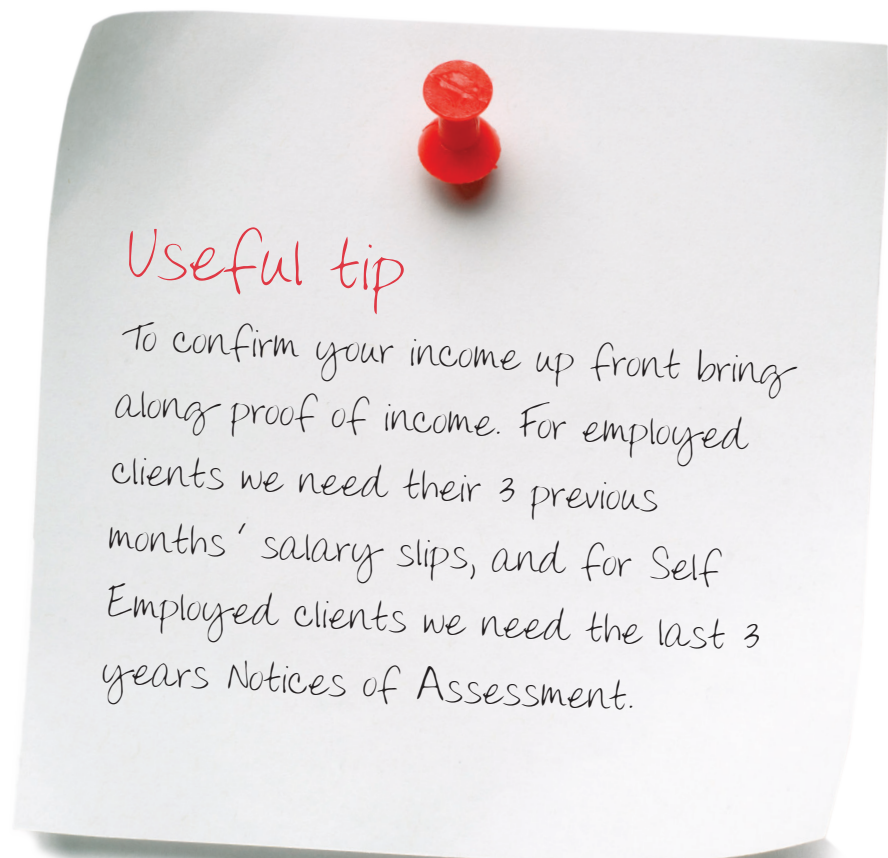 Useful tip
To confirm your income up front bring
along proof of income. For employed
clients we need their 3 previous
months' salary slips, and for Self
Employed clients we need the last 3
years Notices of Assessment.